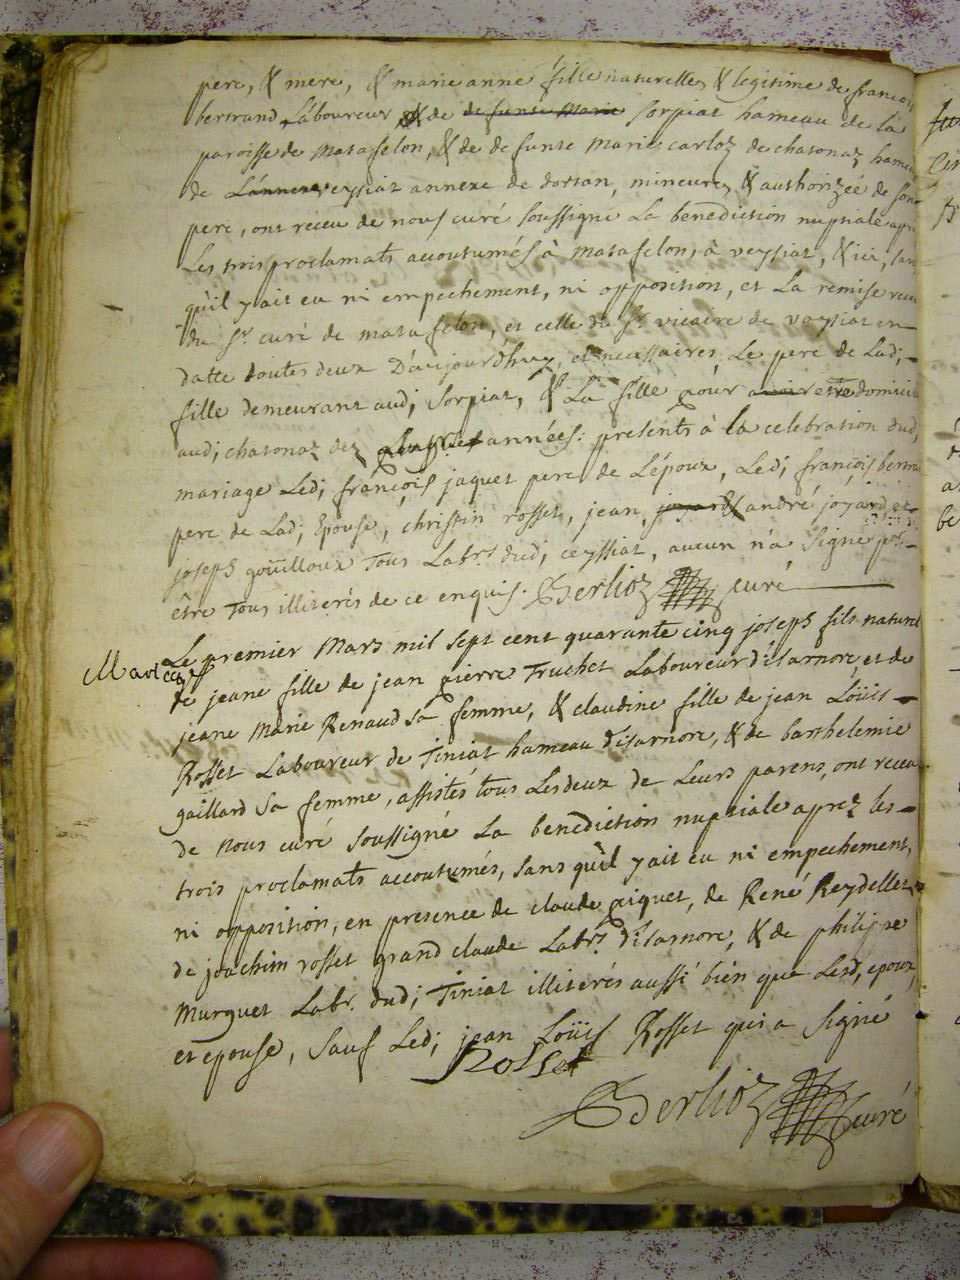 pere, & mere, & marie anne fille naturelle, & legitime de francois
bertrand Laboureur & de de funte Marie sorpiat hameau de la
paroisse de Matafelon, & de defunte Marie carloz de chatonaz hameau
de veyziat annexe de dortan, mineure, & authorizée de son
pere, ont receu de nous curé soussigné La benediction nuptiale apr
Les trois proclamats accoutumés à matafelon, à veyziat, & ici, san
qu'il y ait eu ni empechement, ni opposition, et La remise
du Sr curé de matafelon, et celle du Sr vicaire de veyziat en
datte toutes deux D'aujourd'huy et necessaires Le pere de Lad;
fille demeurant aud; Sorpiat, & La fille pour domicil
aud; chatonaz dez années: presents à la celebration dud;
mariage Led; françois jaquet pere de L'époux, Led; françois bertra
pere de Lad; Epouse, christin rosset, jean, joyard & andré joyard, et
joseph goüilloux Tous Labrs dud; ceyssiat, aucun n'a Signé po
être Tous illiterés de ce enquis. Berlioz curé
Le premier Mars mil sept cent quarante cinq joseph fils naturel
de jeane fille de jean pierre Truchet Laboureur d'isarnore, et de
jeane Marie Renaud sa femme, & claudine fille de jean Loüis
Rosset Laboureur de Tiniat hameau d'isarnore, & de barthelemie
gaillard sa femme, assistés tous Lesdeux de Leurs parens, ont receu
de nous curé soussigné La benediction nuptiale aprez les
trois proclamats accoutumés, sans qu'il y ait eu ni empechement,
ni opposition, en presence de claude piquet, de René Reydellet,
de joachim rosset grand claude Labrs d'isarnore, & de philipe
Murguet Labr. dud; Tiniat illiterés aussi bien que Lesd, epoux,
et epouse, sauf Led; jean Loüis Rosset qui a Signé
Rosset
Berlioz curé